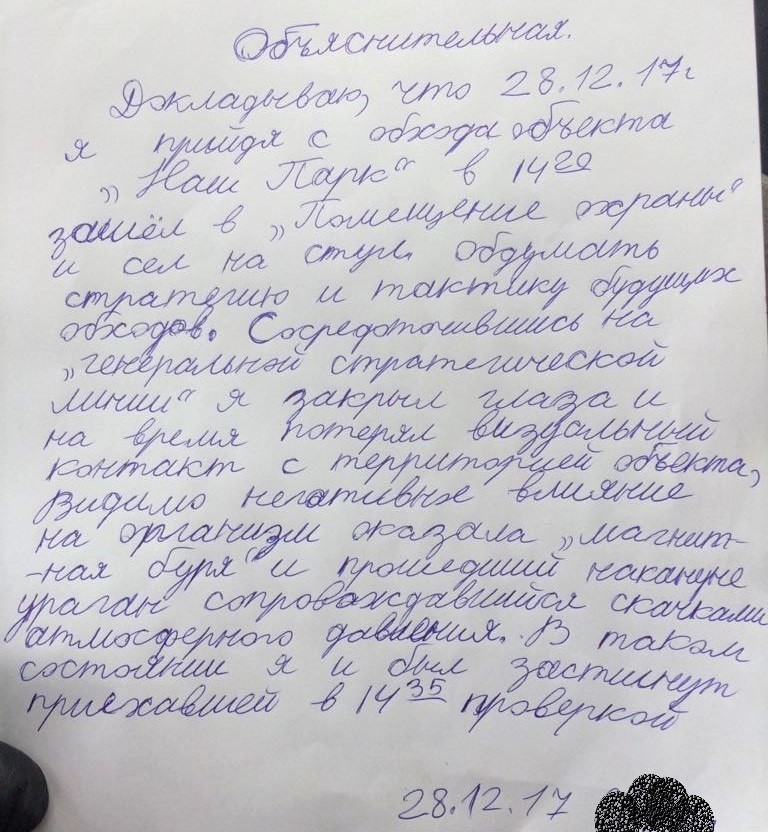 Объяснительная.
Докладываю, что 28.12.17г
я прийдя с обхода объекта
„Наш Парк“ в 14²⁰
зашёл в „Помещение охраны“
и сел на стул. обдумать
стратегию и тактику будущих
обходов. Сосредоточившись на
„генеральной стратегической
линии“ я закрыл глаза и
на время потерял визуальный
контакт с территорией объекта,
Видимо негативных влияние
на организм оказала „магнит-
-ная буря“ и прошедший накануне
ураган сопровождавшийся скачками
атмосферного давления. В таком
состоянии я и был застигнут
приехавшей в 14³⁵ проверкой
28.12.17